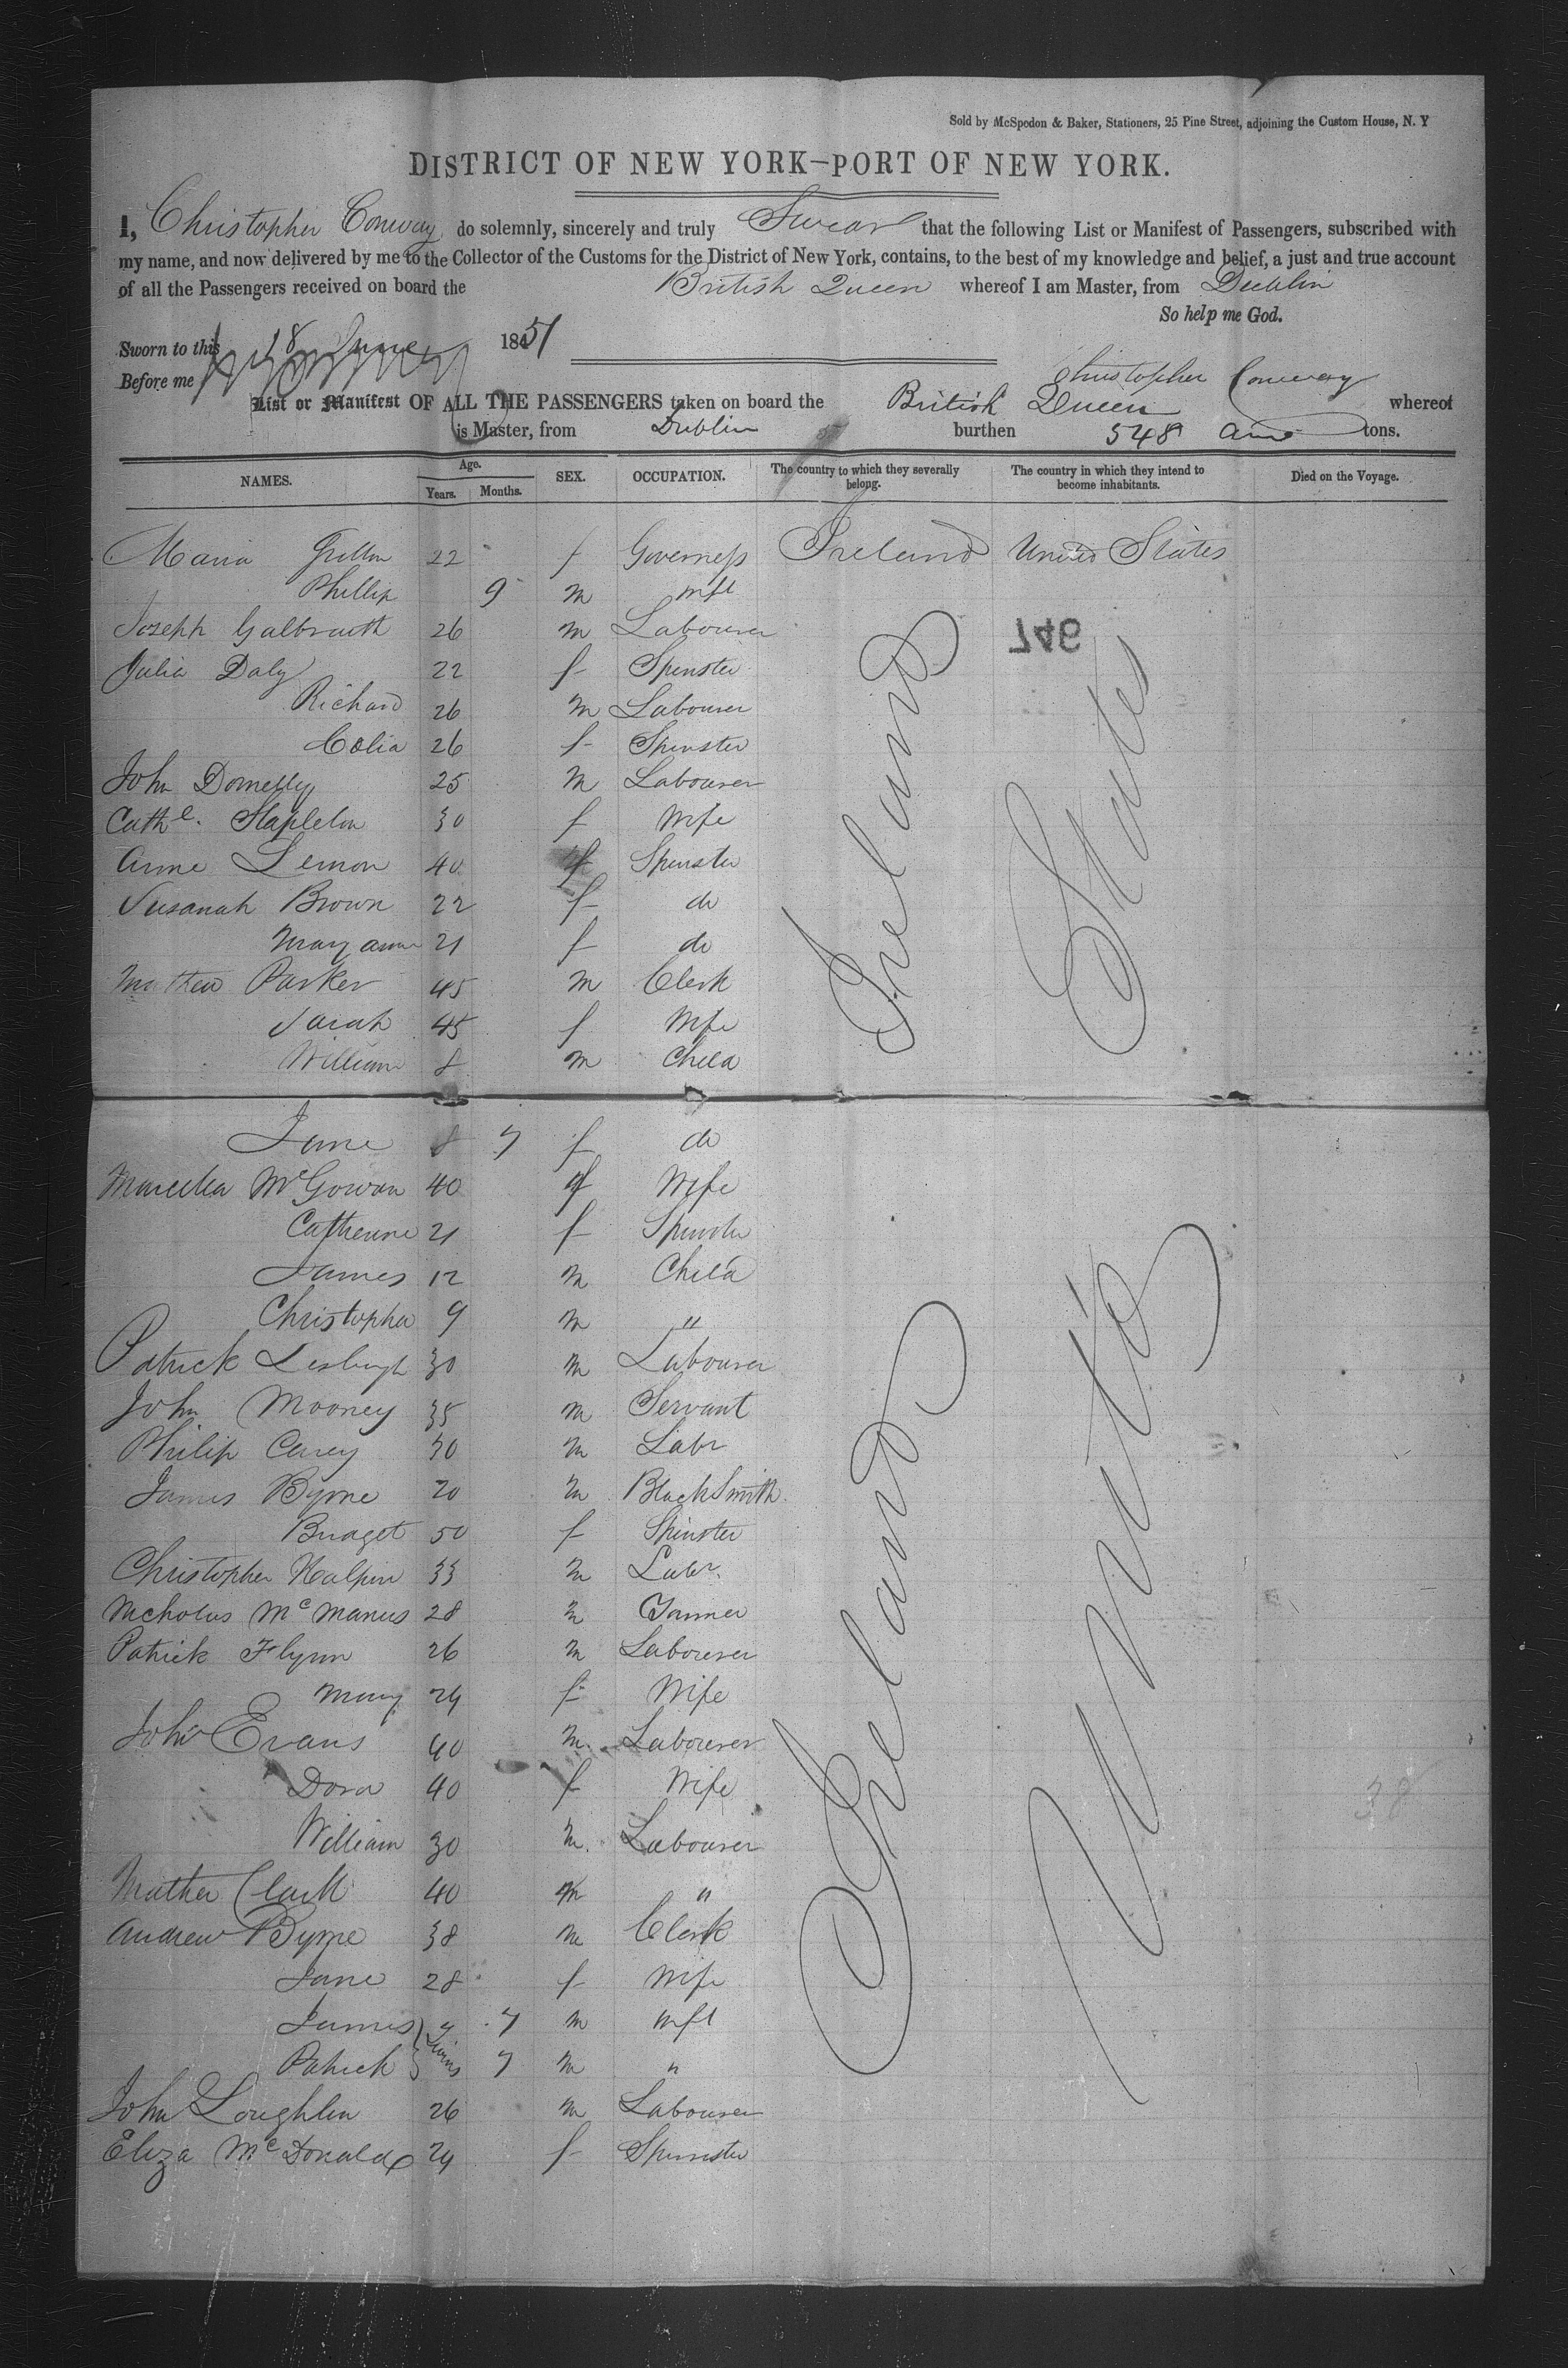 Sold by McSpedon & Baker, Stationers, 25 Pine Street, adjoining the Custom House, N. Y
DISTRICT OF NEW YORK—PORT OF NEW YORK.
I, Christopher Conway do solemnly, sincerely and truly Swear that the following List or Manifest of Passengers, subscribed with
my name, and now delivered by me to the Collector of the Customs for the District of New York, contains, to the best of my knowledge and belief, a just and true account
of all the Passengers received on board the British Queen whereof I am Master, from Dublin
So help me God.
Sworn to this 18 June 1851
Before me
Christopher Conway
List or Manifest OF ALL THE PASSENGERS taken on board the British Queen whereof
is Master, from Dublin burthen 548 tons.
NAMES. Age. Years. Months. SEX. OCCUPATION. The country to which they severally belong. The country in which they intend to become inhabitants. Died on the Voyage.
Maria 22 f Governess Ireland United States
Phillip 9 m Inft
Joseph Galbraith 26 m Labourer
746
Julia Daly 22 f Spinster
Richard 26 m Labourer
Celia 26 f Spinster
John Donnelly 25 m Labourer
Cathe. Stapleton 30 f Wife
Anne Lemon 40 f Spinster
Susanah Brown 22 f do
Mary anne 21 f do
Mathew Parker 45 m Clerk
Sarah 45 f Wife
William 8 m Child
Ireland States
Jane 7 f do
McGowan 40 f Wife
Catherine 21 f Spinster
James 12 m Child
Christopher 9 m "
Patrick 30 m Labourer
John Mooney 35 m Servant
Philip Carey 30 m Labr
James Byrne 20 m BlackSmith
Bridget 50 f Spinster
Christopher Halpin 33 m Labr.
Nicholas McManus 28 m Tanner
Patrick Flynn 26 m Labourer
Mary 24 f Wife
John Evans 40 m Labourer
Dora 40 f Wife
38
William 30 m Labourer
Clark 40 m "
Andrew Byrne 38 m Clerk
Jane 28 f Wife
James 7 m Inft
Patrick twins 7 m "
Ireland United
John Loughlin 26 m Labourer
Eliza McDonald 24 f Spinster